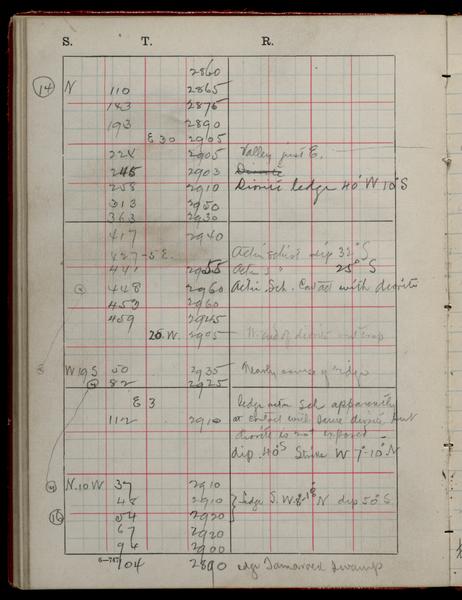 S. T. R.
2860
14 N 110 2865
143 2875
193 2890
E 30 2905
224 2905 Valley just E.
245 2903 Diorite
258 2910 Diorite ledge 40° W 10° S
313 2950
363 2930
417 2940
427 - 5 E. Actin schist dip 35° S
441 2955 Actin S " 25° S
448 2960 Actin Sch. Contact with diorite
453 2960
459 2945
26 W. 2905 W. end of diorite outcrop
W 19 S 50 2935 Nearly course of ridge
82 2925
E 3 ledge actin Sch apparently
112 2910 at contact with same diorite but
diorite is not exposed -
dip 40° S Strike W 7°-10° N
N. 10 W 37 2910
48 2910 ledge S. W 8°-18° N dip 50° S.
16 54 2920
67 2920
94 2900
6-747
104 2890 edge Tamarack Swamp